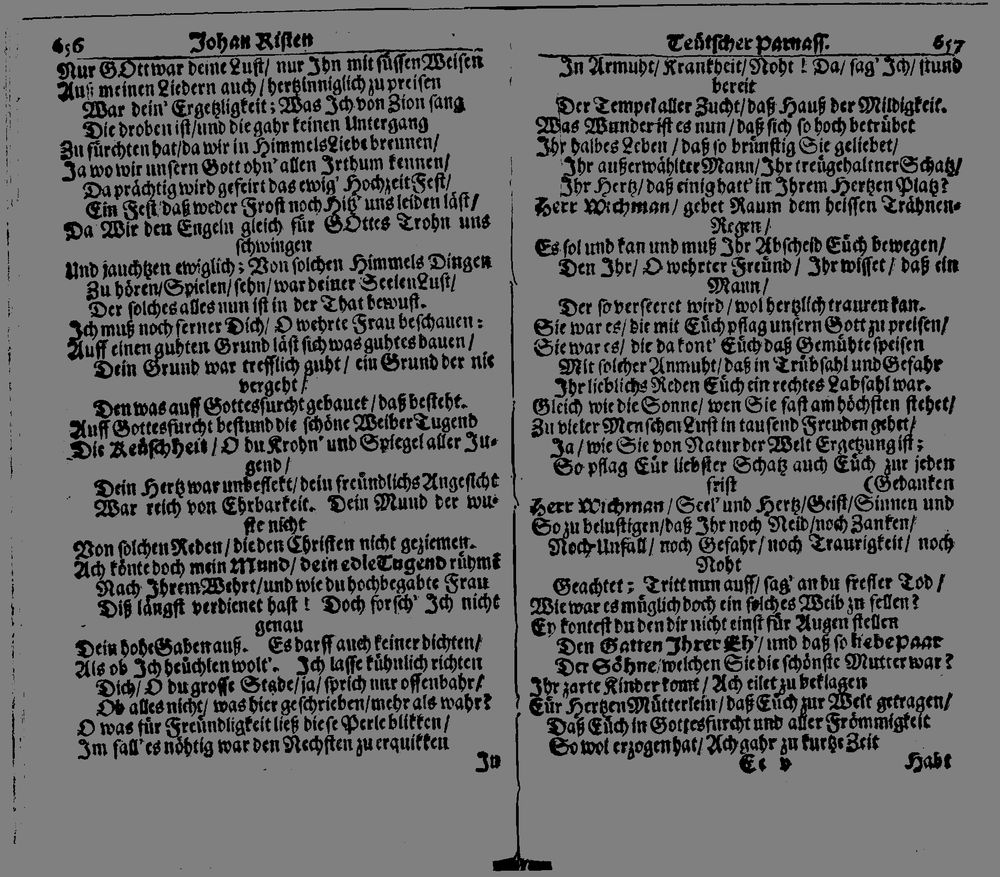 656 Johan Risten
Nur GOtt war deine Lust/ nur Ihn mit süssen Weisen
Auß meinen Liedern auch/ hertzinniglich zu preisen
War dein' Ergetzligkeit; Was Ich von Zion sang
Die droben ist/ und die gahr keinen Untergang
Zu fürchten hat/ da wir in Himmels Liebe brennen/
Ja wo wir unsern Gott ohn' allen Irthum kennen/
Da prächtig wird gefeirt das ewig' Hochzeit Fest/
Ein Fest daß weder Frost noch Hitz' uns leiden läst/
Da Wir den Engeln gleich für GOttes Trohn uns
schwingen
Und jauchtzen ewiglich; Von solchen Himmels Dingen
Zu hören/ Spielen/ sehn/ war deiner Seelen Lust/
Der solches alles nun ist in der That bewust.
Ich muß noch ferner Dich/ O wehrte Frau beschauen:
Auff einen guhten Grund läst sich was guhtes bauen/
Dein Grund war trefflich guht/ ein Grund der nie
vergeht/
Den was auff Gottesfurcht gebauet/ daß besteht.
Auff Gottesfurcht bestund die schöne Weiber Tugend
Die Keüschheit/ O du Krohn' und Spiegel aller Ju-
gend/
Dein Hertz war unbeflekt/ dein freündlichs Angesicht
War reich von Ehrbarkeit. Dein Mund der wu-
ste nicht
Von solchen Reden/ die den Christen nicht geziemen.
Ach könte doch mein Mund/ dein edle Tugend rühmē
Nach Ihrem Wehrt/ und wie du hochbegabte Frau
Diß längst verdienet hast! Doch forsch' Ich nicht
genau
Dein hohe Gaben auß. Es darff auch keiner dichten/
Als ob Ich heüchlen wolt'. Ich lasse kühnlich richten
Dich/ O du grosse Stade/ ja/ sprich nur offenbahr/
Ob alles nicht/ was hier geschrieben/ mehr als wahr?
O was für Freündligkeit ließ diese Perle blikken/
Im fall' es nöhtig war den Nechsten zu erquikken
In
Teütscher Parnass. 657
In Armuht/ Krankheit/ Noht! Da/ sag' Ich/ stund
bereit
Der Tempel aller Zucht/ daß Hauß der Mildigkeit.
Was Wunder ist es nun/ daß sich so hoch betrübet
Ihr halbes Leben/ daß so brünstig Sie geliebet/
Ihr außerwählter Mann/ Ihr treügehaltner Schatz/
Ihr Hertz/ daß einig hatt' in Ihrem Hertzen Platz?
Herr Wichman/ gebet Raum dem heissen Trähnen-
Regen/
Es sol und kan und muß Ihr Abscheid Eüch bewegen/
Den Ihr/ O wehrter Freünd/ Ihr wisset/ daß ein
Mann/
Der so verseeret wird/ wol hertzlich trauren kan.
Sie war es/ die mit Eüch pflag unsern Gott zu preisen/
Sie war es/ die da kont' Eüch daß Gemühte speisen
Mit solcher Anmuht/ daß in Trübsahl und Gefahr
Ihr lieblichs Reden Eüch ein rechtes Labsahl war.
Gleich wie die Sonne/ wen Sie fast am höchsten stehet/
Zu vieler Menschen Lust in tausend Freuden gehet/
Ja/ wie Sie von Natur der Welt Ergetzung ist;
So pflag Eür liebster Schatz auch Eüch zur jeden
frist (Gedanken
Herr Wichman/ Seel' und Hertz/ Geist/ Sinnen und
So zu belustigen/ daß Ihr noch Neid/ noch Zanken/
Noch Unfall/ noch Gefahr/ noch Traurigkeit/ noch
Noht
Geachtet; Tritt nun auff/ sag' an du fresser Tod/
Wie war es müglich doch ein solches Weib zu fellen?
Ey kontest du den dir nicht einst für Augen stellen
Den Gatten Ihrer Eh'/ und daß so liebe paar
Der Söhne/ welchen Sie die schönste Mutter war?
Ihr zarte Kinder komt/ Ach eilet zu beklagen
Eür Hertzen Mütterlein/ daß Eüch zur Welt getragen/
Daß Eüch in Gottesfurcht und aller Frömmigkeit
So wol erzogen hat/ Ach gahr zu kurtze Zeit
Ee v Habt